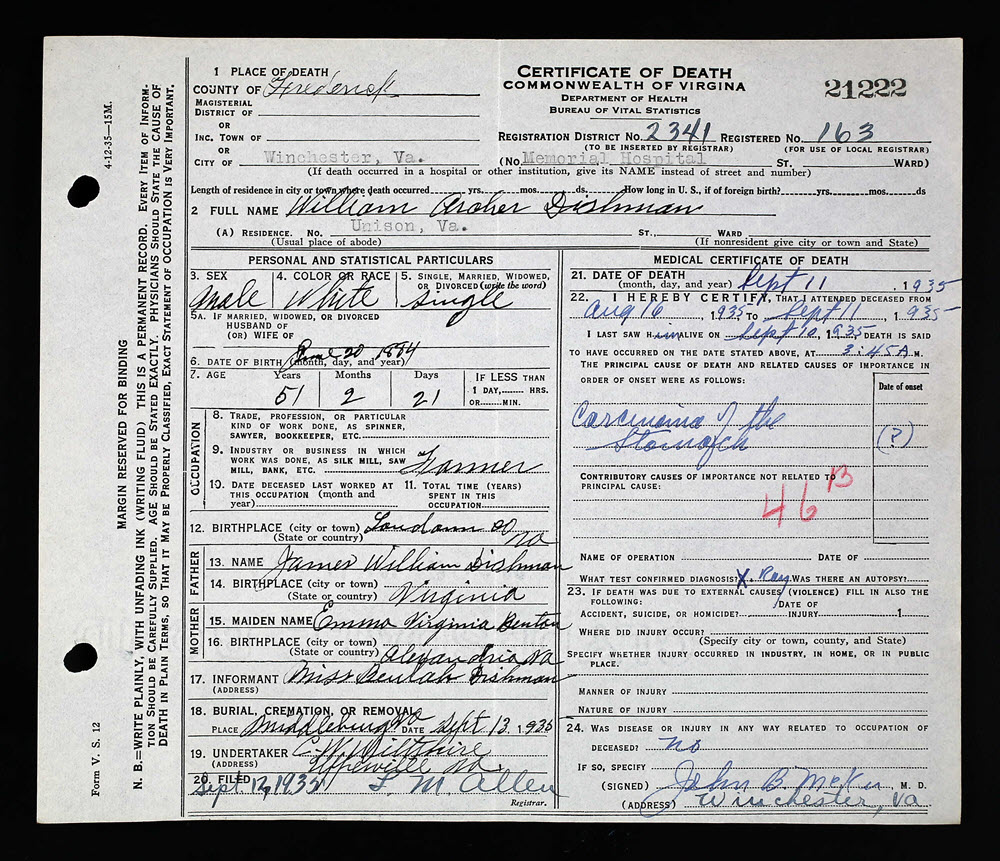 4-12-35—15M.
MARGIN RESERVED FOR BINDING
N. B.—WRITE PLAINLY, WITH UNFADING INK (WRITING FLUID) THIS IS A PERMANENT RECORD. EVERY ITEM OF INFORM-
TION SHOULD BE CAREFULLY SUPPLIED. AGE SHOULD BE STATED EXACTLY. PHYSICIANS SHOULD STATE THE CAUSE OF
DEATH IN PLAIN TERMS, SO THAT IT MAY BE PROPERLY CLASSIFIED. EXACT STATEMENT OF OCCUPATION IS VERY IMPORTANT.
Form V. S. 12
1 PLACE OF DEATH
COUNTY OF Frederick
MAGISTERIAL
DISTRICT OF
OR
INC. TOWN OF
OR
CITY OF Winchester, Va.
CERTIFICATE OF DEATH
COMMONWEALTH OF VIRGINA
DEPARTMENT OF HEALTH
BUREAU OF VITAL STATISTICS
21222
REGISTRATION DISTRICT No. 2341 REGISTERED No. 163
(TO BE INSERTED BY REGISTRAR) (FOR USE OF LOCAL REGISTRAR)
(No. Memorial Hospital ST. WARD)
(If death occurred in a hospital or other institution, give its NAME instead of street and number)
Length of residence in city or town where death occurred yrs. mos. ds. How long in U. S., if of foreign birth? yrs. mos. ds
2 FULL NAME William Archer Dishman
(A) RESIDENCE. No. Unison, Va. ST., WARD
(Usual place of abode) (If nonresident give city or town and State)
PERSONAL AND STATISTICAL PARTICULARS
3. SEX 4. COLOR OR RACE 5. SINGLE, MARRIED, WIDOWED,
OR DIVORCED (write the word)
Male White Single
5A. IF MARRIED, WIDOWED, OR DIVORCED
HUSBAND OF
(OR) WIFE OF
6. DATE OF BIRTH (month, day, and year) June 20 1884
7. AGE Years Months Days IF LESS THAN
1 DAY, HRS.
OR MIN.
51 2 21
OCCUPATION
8. TRADE, PROFESSION, OR PARTICULAR
KIND OF WORK DONE, AS SPINNER,
SAWYER, BOOKKEEPER, ETC.
9. INDUSTRY OR BUSINESS IN WHICH
WORK WAS DONE, AS SILK MILL, SAW
MILL, BANK, ETC. Farmer
10. DATE DECEASED LAST WORKED AT
THIS OCCUPATION (month and
year)
11. TOTAL TIME (YEARS)
SPENT IN THIS
OCCUPATION
12. BIRTHPLACE (city or town) Loudoun Co
(State or country) Va
FATHER
13. NAME James William Dishman
14. BIRTHPLACE (city or town)
(State or country) Virginia
MOTHER
15. MAIDEN NAME Emma Virginia Benton
16. BIRTHPLACE (city or town)
(State or country) Alexandria Va
17. INFORMANT Miss Beulah Dishman
(ADDRESS)
18. BURIAL, CREMATION, OR REMOVAL
PLACE Middleburg Va DATE Sept 13. 1935
19. UNDERTAKER C. W. Wiltshire
(ADDRESS) Upperville Va.
20. FILED Sept. 12, 1935 L. M. Allen
Registrar.
MEDICAL CERTIFICATE OF DEATH
21. DATE OF DEATH
(month, day, and year) Sept 11, 1935
22. I HEREBY CERTIFY, THAT I ATTENDED DECEASED FROM
Aug 16, 1935 TO Sept 11, 1935
I LAST SAW HIM ALIVE ON Sept 10, 1935, DEATH IS SAID
TO HAVE OCCURRED ON THE DATE STATED ABOVE, AT 3:45A M.
THE PRINCIPAL CAUSE OF DEATH AND RELATED CAUSES OF IMPORTANCE IN
ORDER OF ONSET WERE AS FOLLOWS:
Date of onset
Carcinoma of the
Stomach
(?)
CONTRIBUTORY CAUSES OF IMPORTANCE NOT RELATED TO
PRINCIPAL CAUSE:
46 B
NAME OF OPERATION DATE OF
WHAT TEST CONFIRMED DIAGNOSIS? X-Ray WAS THERE AN AUTOPSY?
23. IF DEATH WAS DUE TO EXTERNAL CAUSES (VIOLENCE) FILL IN ALSO THE
FOLLOWING: DATE OF
ACCIDENT, SUICIDE, OR HOMICIDE? INJURY 1
WHERE DID INJURY OCCUR?
(Specify city or town, county, and State)
SPECIFY WHETHER INJURY OCCURRED IN INDUSTRY, IN HOME, OR IN PUBLIC
PLACE.
MANNER OF INJURY
NATURE OF INJURY
24. WAS DISEASE OR INJURY IN ANY WAY RELATED TO OCCUPATION OF
DECEASED? no
IF SO, SPECIFY
(SIGNED) John B. M. D.
(ADDRESS) Winchester, Va